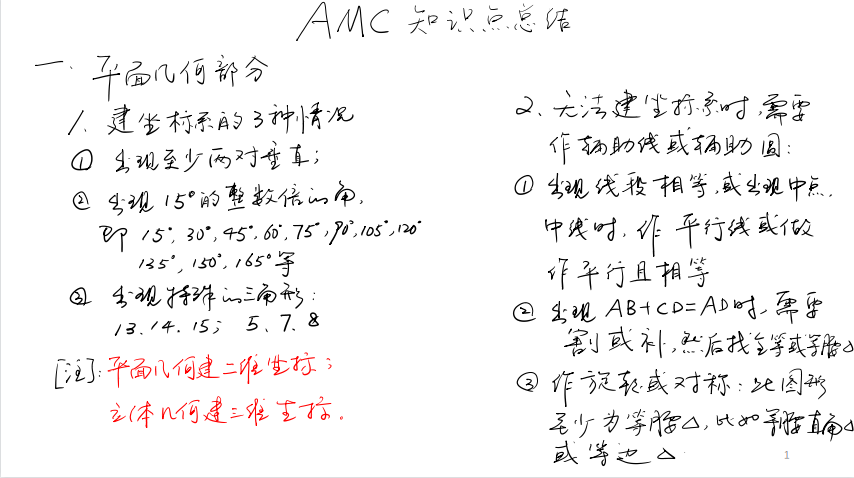 AMC 知识点总结
一. 平面几何部分
1. 建坐标系的3种情况
① 出现至少两对垂直;
② 出现15°的整数倍的角,
即 15°, 30°, 45°, 60°, 75°, 90°, 105°, 120°
135°, 150°, 165°等
③ 出现特殊的三角形:
13. 14. 15; 5. 7. 8
[注]: 平面几何建二维坐标;
立体几何建三维坐标.
2. 无法建坐标系时, 需要
作辅助线或辅助圆:
① 出现线段相等, 或出现中点,
中线时, 作平行线或做
作平行且相等
② 出现 AB+CD=AD时, 需要
割或补, 然后找全等或等腰△
③ 作旋转或对称: 此图形
至少为等腰△, 比如等腰直角△
或等边△
1